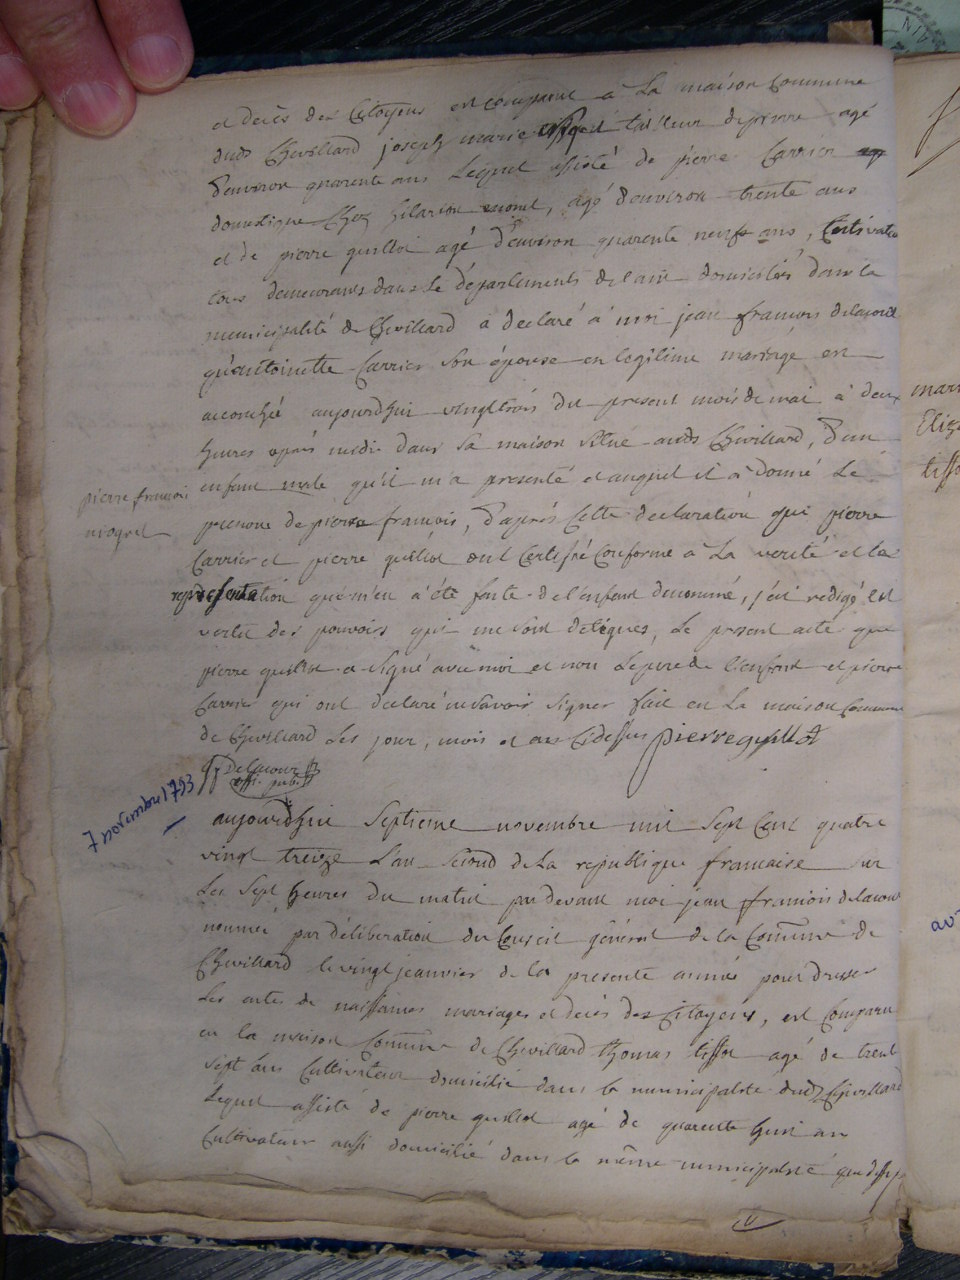 et decés des Citoyens est comparut à La maison Commune
dudt Chevillard joseph marie tailleur de pierre agé
d'environ quarente ans Lequel assisté de pierre Carrier
domestique Chez hilarion , agé d'environ trente ans
et de pierre guillot agé d'environ quarente neuf ans, Cultivateur
tous demeurants dans Le départements de l'ain domiciliés dans la
municipalité de Chevillard a declaré à moi jean francois delacour
qu'antoinette Carrier son épouse en legitime mariage est
accouchée aujourdhui vingt trois du present mois de mai à deux
heures après midi dans sa maison situé audt Chevillard, d'un
enfant male qu'il m'a presenté et auquel il a donné Le
pierre francois
nioquet
prenom de pierre francois, d'après Cette declaration que pierre
Carrier et pierre guillot ont Certifié Conforme à La verité et la
representation qui m'en a été faite de l'enfant denommé, j'ai redigé en
vertu des pouvoirs qui me sont delégués, Le present acte que
pierre guillot a signé avec moi et non Le pere de l'enfant et pierre
Carrier qui ont declaré ne savoir signer fait en La maison Commune
de Chevillard Les jour, mois et an Cidessus pierre guillot
Delacour
offi. pub.
7 novembre 1793
aujourdhui Septieme novembre mil Sept Cent quatre
vingt treize L'an Second de La republique francaise sur
Les Sept heures du matin par devant moi jean francois delacour
nommé par déliberation du Conseil général de la Commune de
Chevillard le vingt jeanvier de la presente année pour dresser
Les actes de naissances mariages et decés des Citoyens, est Comparu
en la maison Commune de Chevillard thomas tissot agé de trente
Sept ans Cultivateur domicilié dans la municipalité dudt Chevillard
Lequel assisté de pierre guillot agé de quarente huit an
Cultivateur aussi domicilié dans la même municipalité